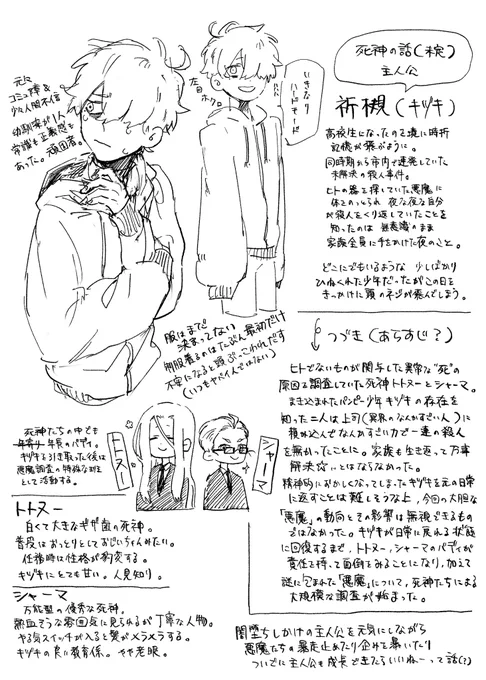 死神の話(未定)
主人公
祈槻(キヅキ)
高校生になったのを境に時折
記憶が飛ぶように。
同時期から市内で連発していた
未解決の殺人事件。
ヒトの器を探していた悪魔に
体をのっとられ 夜な夜な自分
が殺人をくり返していたことを
知ったのは 無意識のまま
家族全員に手をかけた夜のこと。
どこにでもいるような 少しばかり
ひねくれた少年だったがこの日を
きっかけに頭のネジが飛んでしまう。
元は
コミュ障&
少々人間不信
幼馴染が1人
常識も正義感も
あった。頑固者。
左目
ホクロ
いきなり
ハードモード
服はまだ
決まってない
制服着るのはたぶん最初だけ
不安になると頭ぶっこわれだす
(いつもヤバイ人ではない)
つづき(あらすじ?)
ヒトでないものが関与した異常な“死”の
原因を調査していた死神トトヌーとシャーマ。
まき込まれたパンピー少年キヅキの存在を
知った二人は上司(異界のなんかすごい人)に
積め込んでなんかすごい力で一連の殺人
を無かったことに。家族も生き返って万事
解決☆…とはならなかった。
精神的におかしくなってしまったキヅキを元の日常
に返すことは難しそうな上、今回の大胆な
「悪魔」の動向とその影響は無視できるもの
ではなかった。キヅキが日常に戻れる状態
に回復するまで、トトヌー、シャーマのバディが
責任を持って面倒をみることになり、加えて
謎に包まれた「悪魔」について、死神たちによる
大規模な調査が始まった。
死神たちの中でも
年長のバディ。
キヅキを引き取った後は
悪魔調査の特殊な班
として活動する。
トトヌー
シャーマ
トトヌー
白くて大きなギザ歯の死神。
普段はおっとりとしておじいちゃんみたい。
任務時は性格が豹変する。
キヅキにとても甘い。人見知り。
シャーマ
万能型の優秀な死神。
熱血そうな雰囲気に見られるが丁寧な人物。
やる気スイッチが入ると髪がメラメラする。
キヅキの良い教育係。やや老眼。
闇堕ちしかけの主人公を元気にしながら
悪魔たちの暴走止めたり企てを暴いたり
ついでに主人公も成長できたらいいねーって話(?)